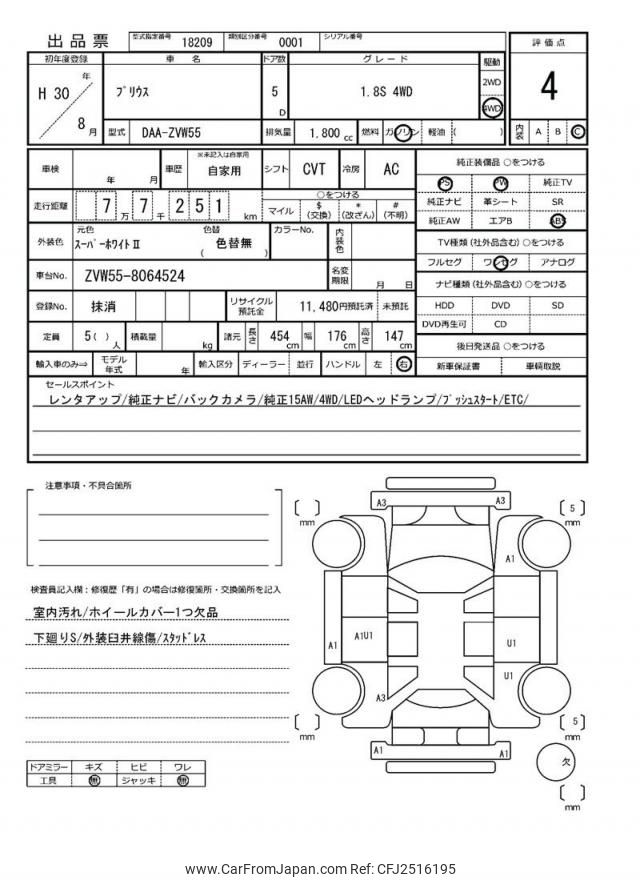 出品票 型式指定番号 18209 類別区分番号 0001 シリアル番号
評価点
4
内装 A B C
初年度登録 車名 ドア数 グレード 駆動
H 30 年 8 月
プリウス 5 D 1.8S 4WD 2WD 4WD
型式 DAA-ZVW55 排気量 1.800 cc 燃料 ガソリン 軽油 ( )
車検 年 月 車歴 ※未記入は自家用 自家用 シフト CVT 冷房 AC
走行距離 7 万 7 千 2 5 1 km
○をつける
マイル $(交換) *(改ざん) #(不明)
外装色 元色 スーパーホワイトⅡ 色替 ( 色替無 ) カラーNo. 内装色
車台No. ZVW55-8064524 名変期限 月 日
登録No. 抹消 リサイクル預託金 11,480円預託済 未預託
定員 5 ( ) 人 積載量 kg 諸元 長さ 454 cm 幅 176 cm 高さ 147 cm
輸入車のみ⇒ モデル年式 年 輸入区分 ディーラー 並行 ハンドル 左 右
純正装備品 ○をつける
PS PW 純正TV
純正ナビ 革シート SR
純正AW エアB ABS
TV種類(社外品含む) ○をつける
フルセグ ワンセグ アナログ
ナビ種類(社外品含む) ○をつける
HDD DVD SD
DVD再生可 CD
後日発送品 ○をつける
新車保証書 車輌取説
セールスポイント
レンタアップ/純正ナビ/バックカメラ/純正15AW/4WD/LEDヘッドランプ/プッシュスタート/ETC/
注意事項・不具合箇所
検査員記入欄：修復歴「有」の場合は修復箇所・交換箇所を記入
室内汚れ/ホイールカバー1つ欠品
下廻りS/外装臼井線傷/スタッドレス
ドアミラー キズ ヒビ ワレ
工具 無 ジャッキ 無
[ ] mm A3 A3 [ 5 ] mm
A1
A1 A1U1 U1
U1
A3
[ ] mm A1 A1 [ 5 ] mm
欠
[ ] mm
www.CarFromJapan.com Ref: CFJ2516195